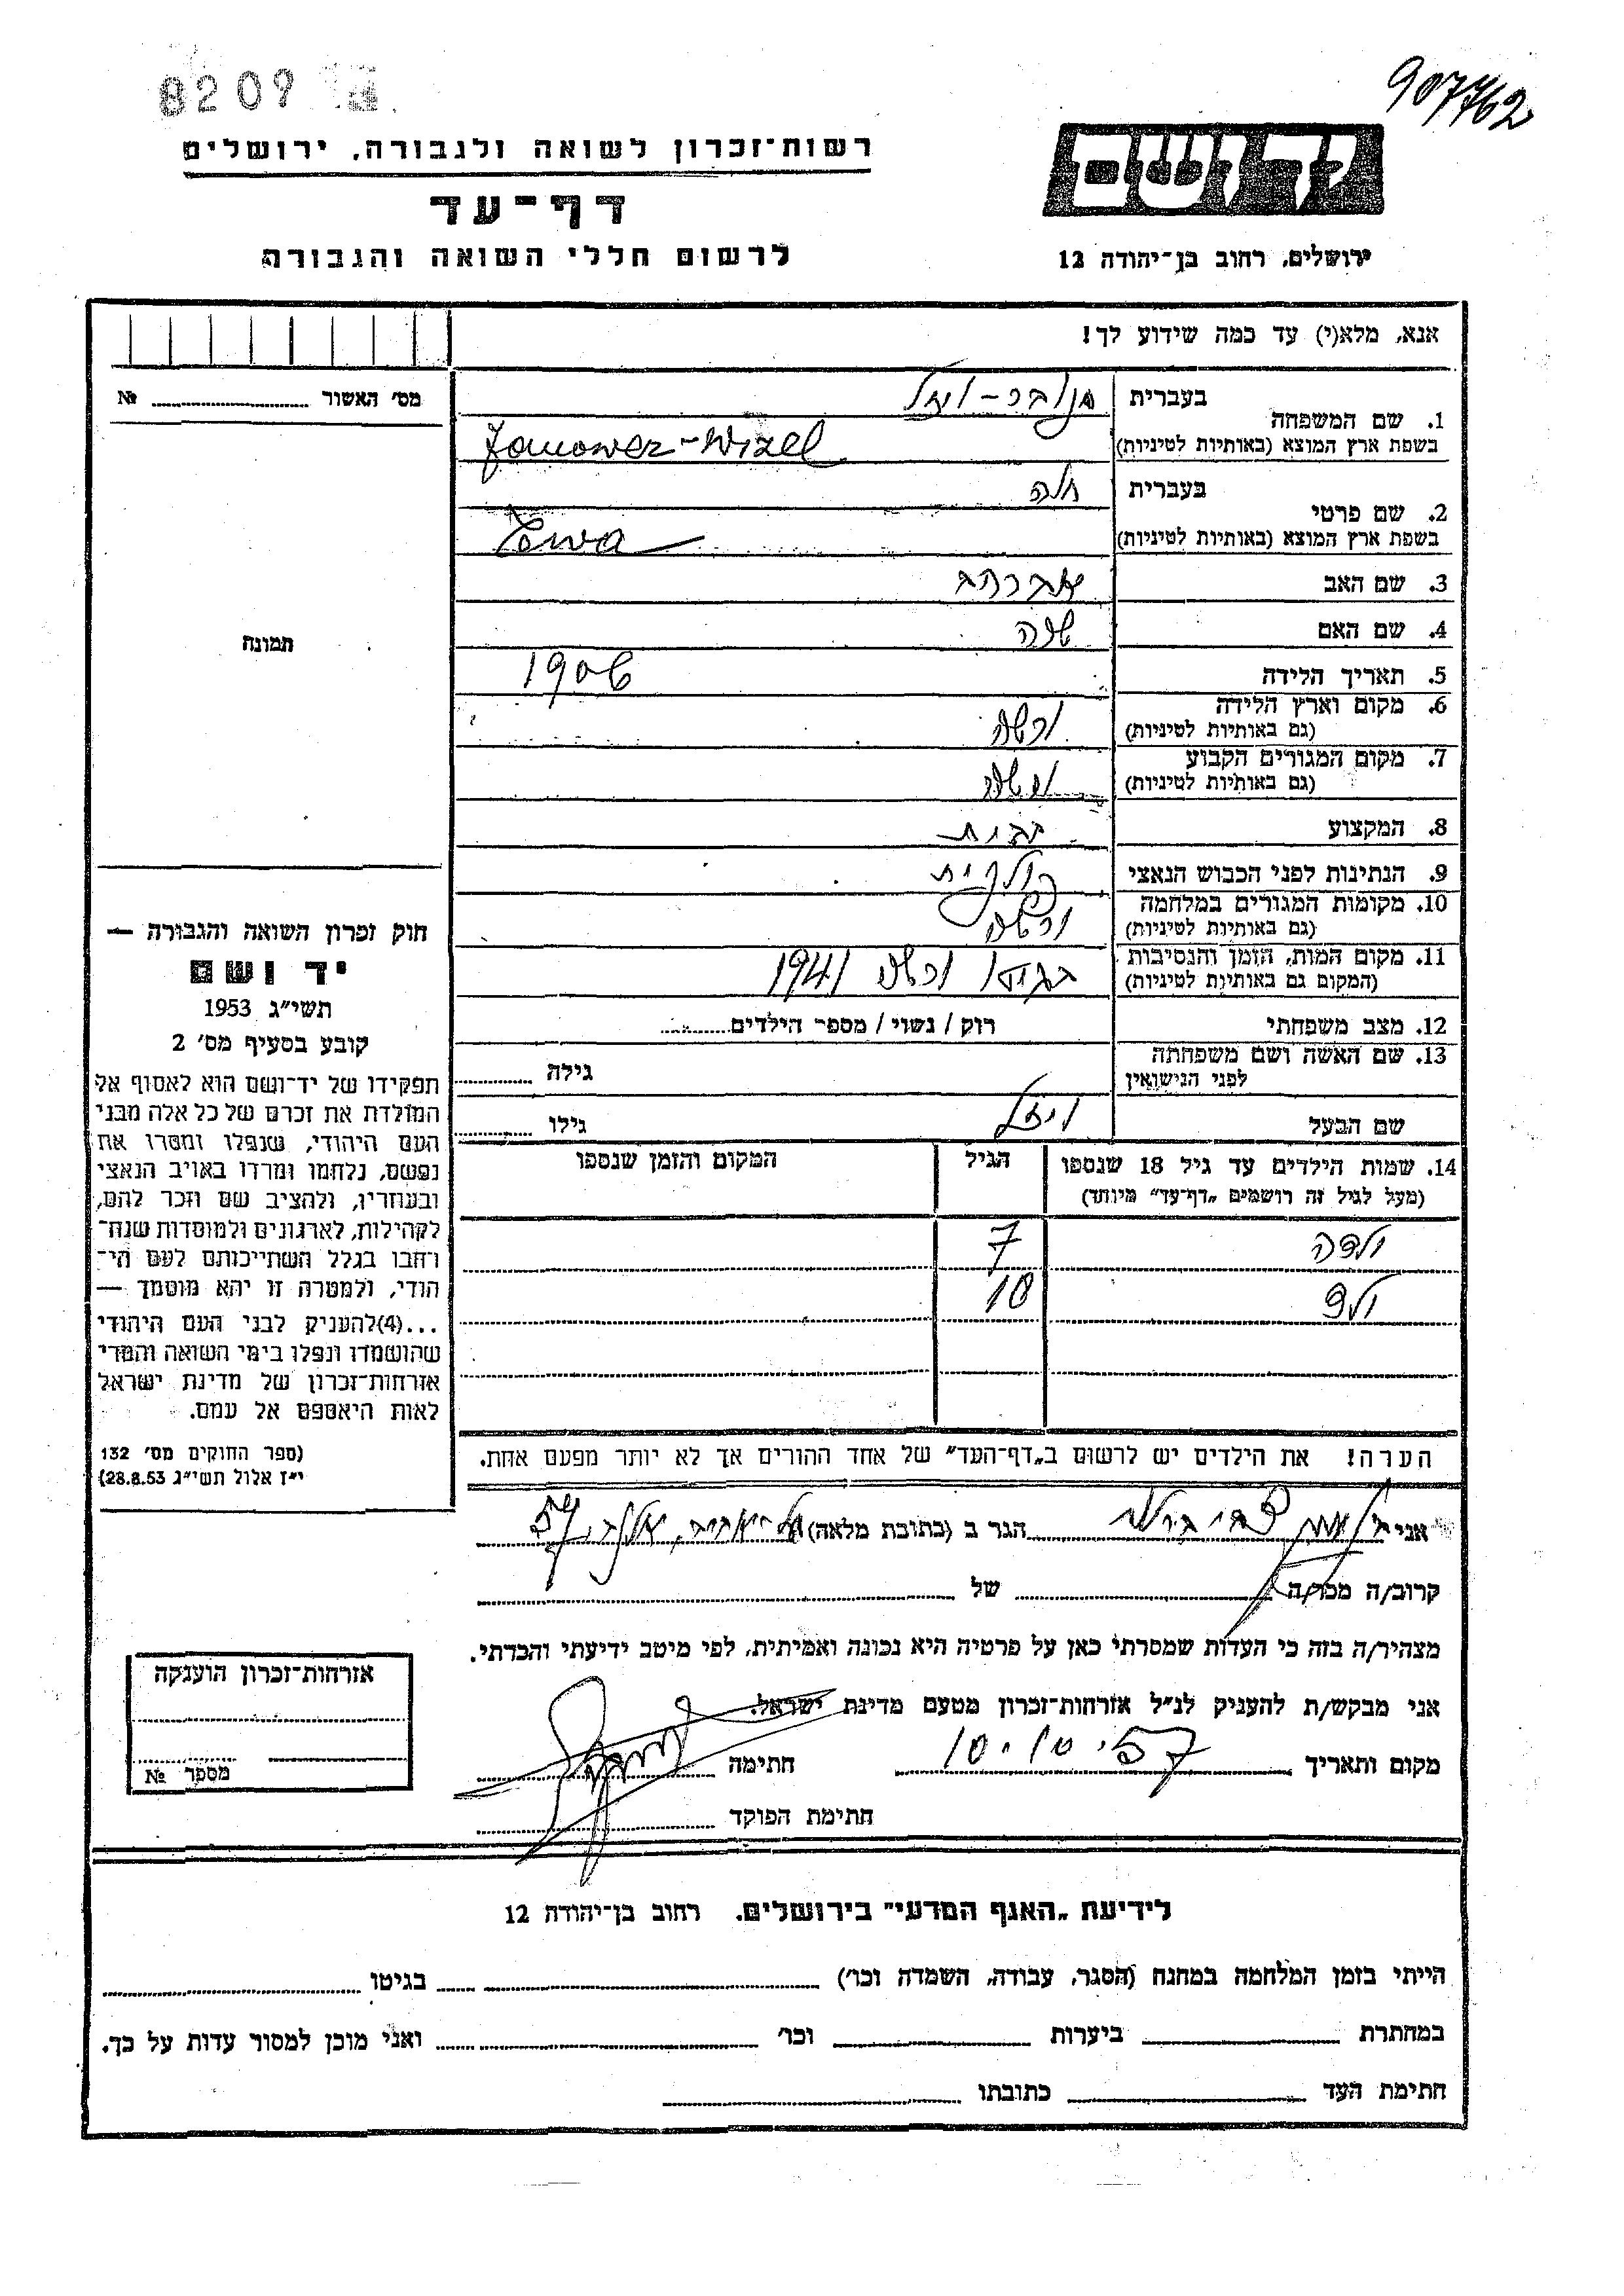 8209
907762
רשות־זכרון לשואה ולגבורה, ירושלים
דף־עד
לרשום חללי השואה והגבורה
יד ושם
ירושלים, רחוב בן־יהודה 12
אנא, מלא(י) עד כמה שידוע לך!
מס׳ האשור № 
1. שם המשפחה
בעברית
בשפת ארץ המוצא (באותיות לטיניות)
Wizel
2. שם פרטי
בעברית חוה
בשפת ארץ המוצא (באותיות לטיניות)
3. שם האב אברהם
4. שם האם
5. תאריך הלידה 1906
6. מקום וארץ הלידה ורשה
(גם באותיות לטיניות)
7. מקום המגורים הקבוע ורשה
(גם באותיות לטיניות)
8. המקצוע
9. הנתינות לפני הכבוש הנאצי פולנית
10. מקומות המגורים במלחמה ורשה
(גם באותיות לטיניות)
11. מקום המות, הזמן והנסיבות בגיטו ורשה 1941
(המקום גם באותיות לטיניות)
12. מצב משפחתי רוק / נשוי / מספר הילדים
13. שם האשה ושם משפחתה
לפני הנישואין גילה
שם הבעל ויזל גילו
14. שמות הילדים עד גיל 18 שנספו
(מעל לגיל זה רושמים „דף־עד״ מיוחד)
הגיל
המקום והזמן שנספו
ילדה 7
ילד 10
הערה! את הילדים יש לרשום ב„דף־העד״ של אחד ההורים אך לא יותר מפעם אחת.
תמונה
חוק זכרון השואה והגבורה —
יד ושם
תשי״ג 1953
קובע בסעיף מס׳ 2
תפקידו של יד־ושם הוא לאסוף אל
המולדת את זכרם של כל אלה מבני
העם היהודי, שנפלו ומסרו את
נפשם, נלחמו ומרדו באויב הנאצי
ובעוזריו, ולהציב שם וזכר להם,
לקהילות, לארגונים ולמוסדות שנח־
רחבו בגלל השתייכותם לעם הי־
הודי, ולמטרה זו יהא מוסמך —
...(4)להעניק לבני העם היהודי
שהושמדו ונפלו בימי השואה והמרי
אזרחות־זכרון של מדינת ישראל
לאות היאספם אל עמם.
(ספר החוקים מס׳ 132
י״ז אלול תשי״ג 28.8.53)
אני הגר ב (כתובת מלאה) 57
קרוב/ה מכר/ה של
מצהיר/ה בזה כי העדות שמסרתי כאן על פרטיה היא נכונה ואמיתית, לפי מיטב ידיעתי והכרתי.
אני מבקש/ת להעניק לנ״ל אזרחות־זכרון מטעם מדינת ישראל.
מקום ותאריך 10.10.57 חתימה
חתימת הפוקד
אזרחות־זכרון הוענקה
מספר №
לידיעת „האגף המדעי״ בירושלים, רחוב בן־יהודה 12
הייתי בזמן המלחמה במחנה (הסגר, עבודה, השמדה וכו׳) בגיטו
במחתרת ביערות וכו׳ ואני מוכן למסור עדות על כך.
חתימת העד כתובתו